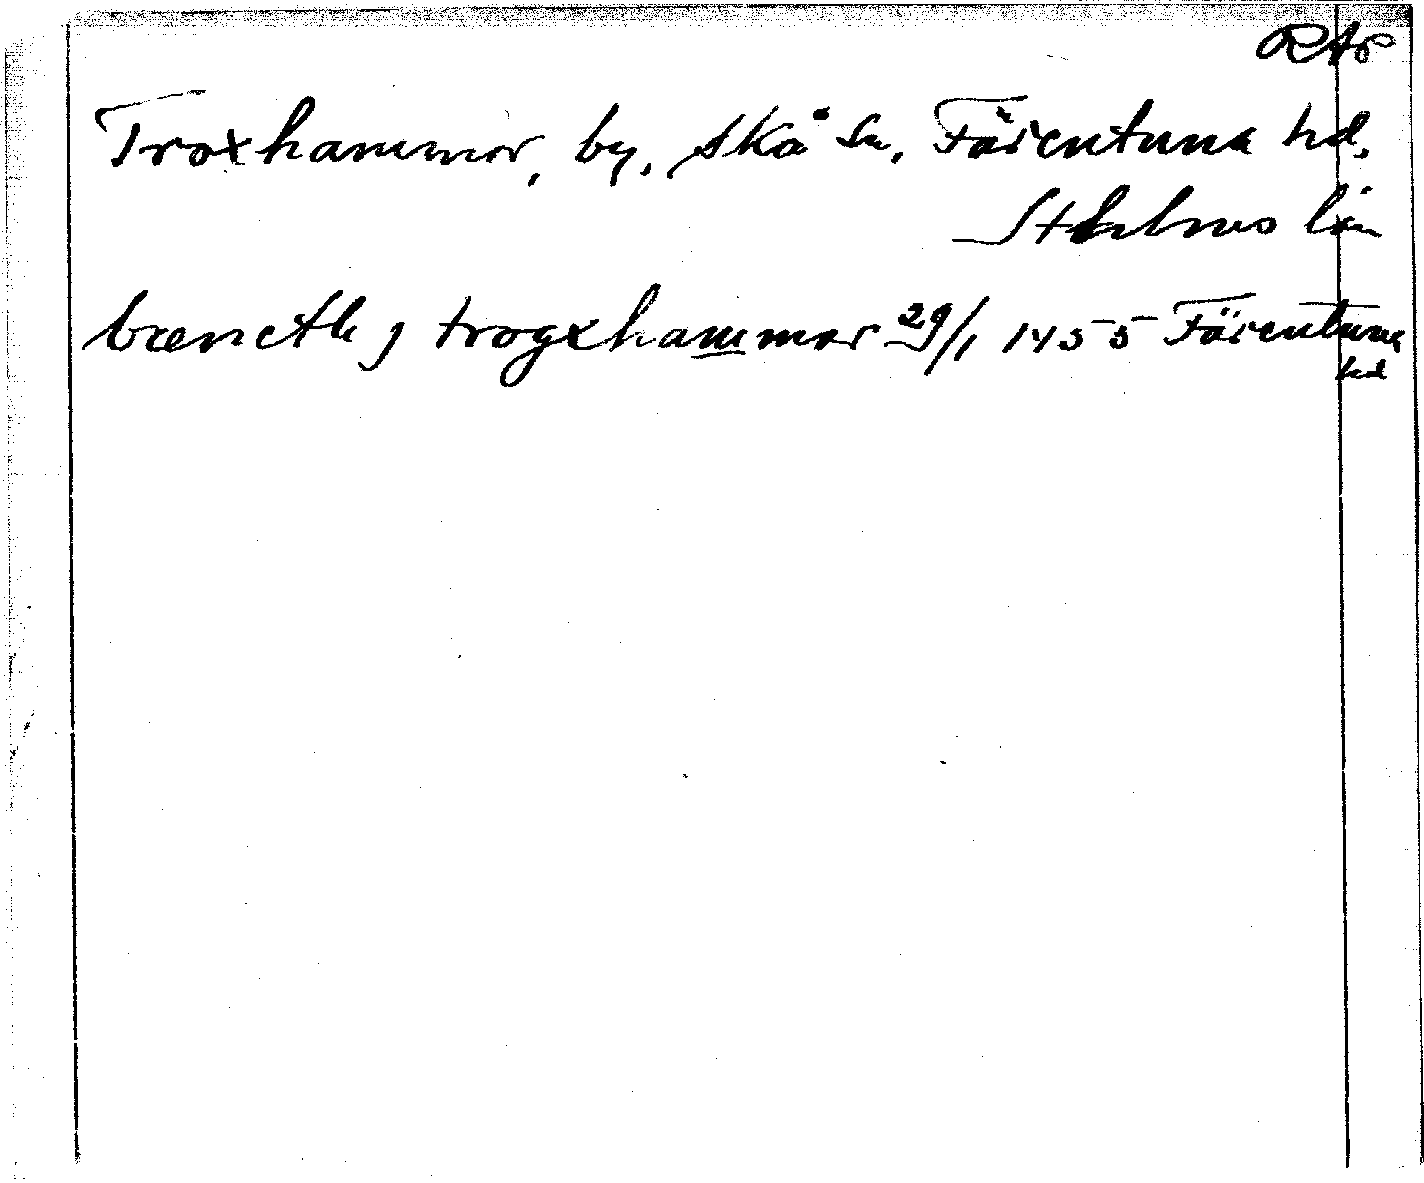 RAp
Troxhammar, by, Skå sn, Färentuna hd,
Sthlms län
bæncth j trogxhammar 29/1 1455 Färentuna
hd